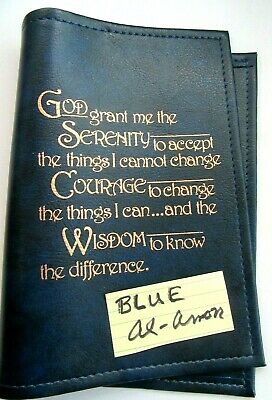 GOD grant me the
SERENITY to accept
the things I cannot change
COURAGE to change
the things I can...and the
WISDOM to know
the difference.
BLUE
al-anon